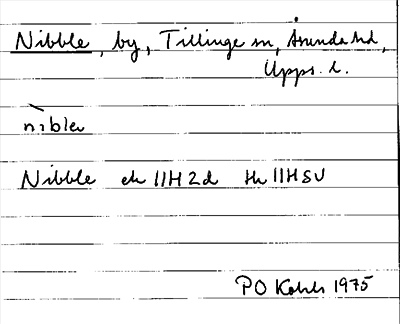 Nibble, by, Tillinge sn, Åsunda hd,
Upps. l.
nìbler
Nibble ek 11H2d tk 11HSV
PO 1975